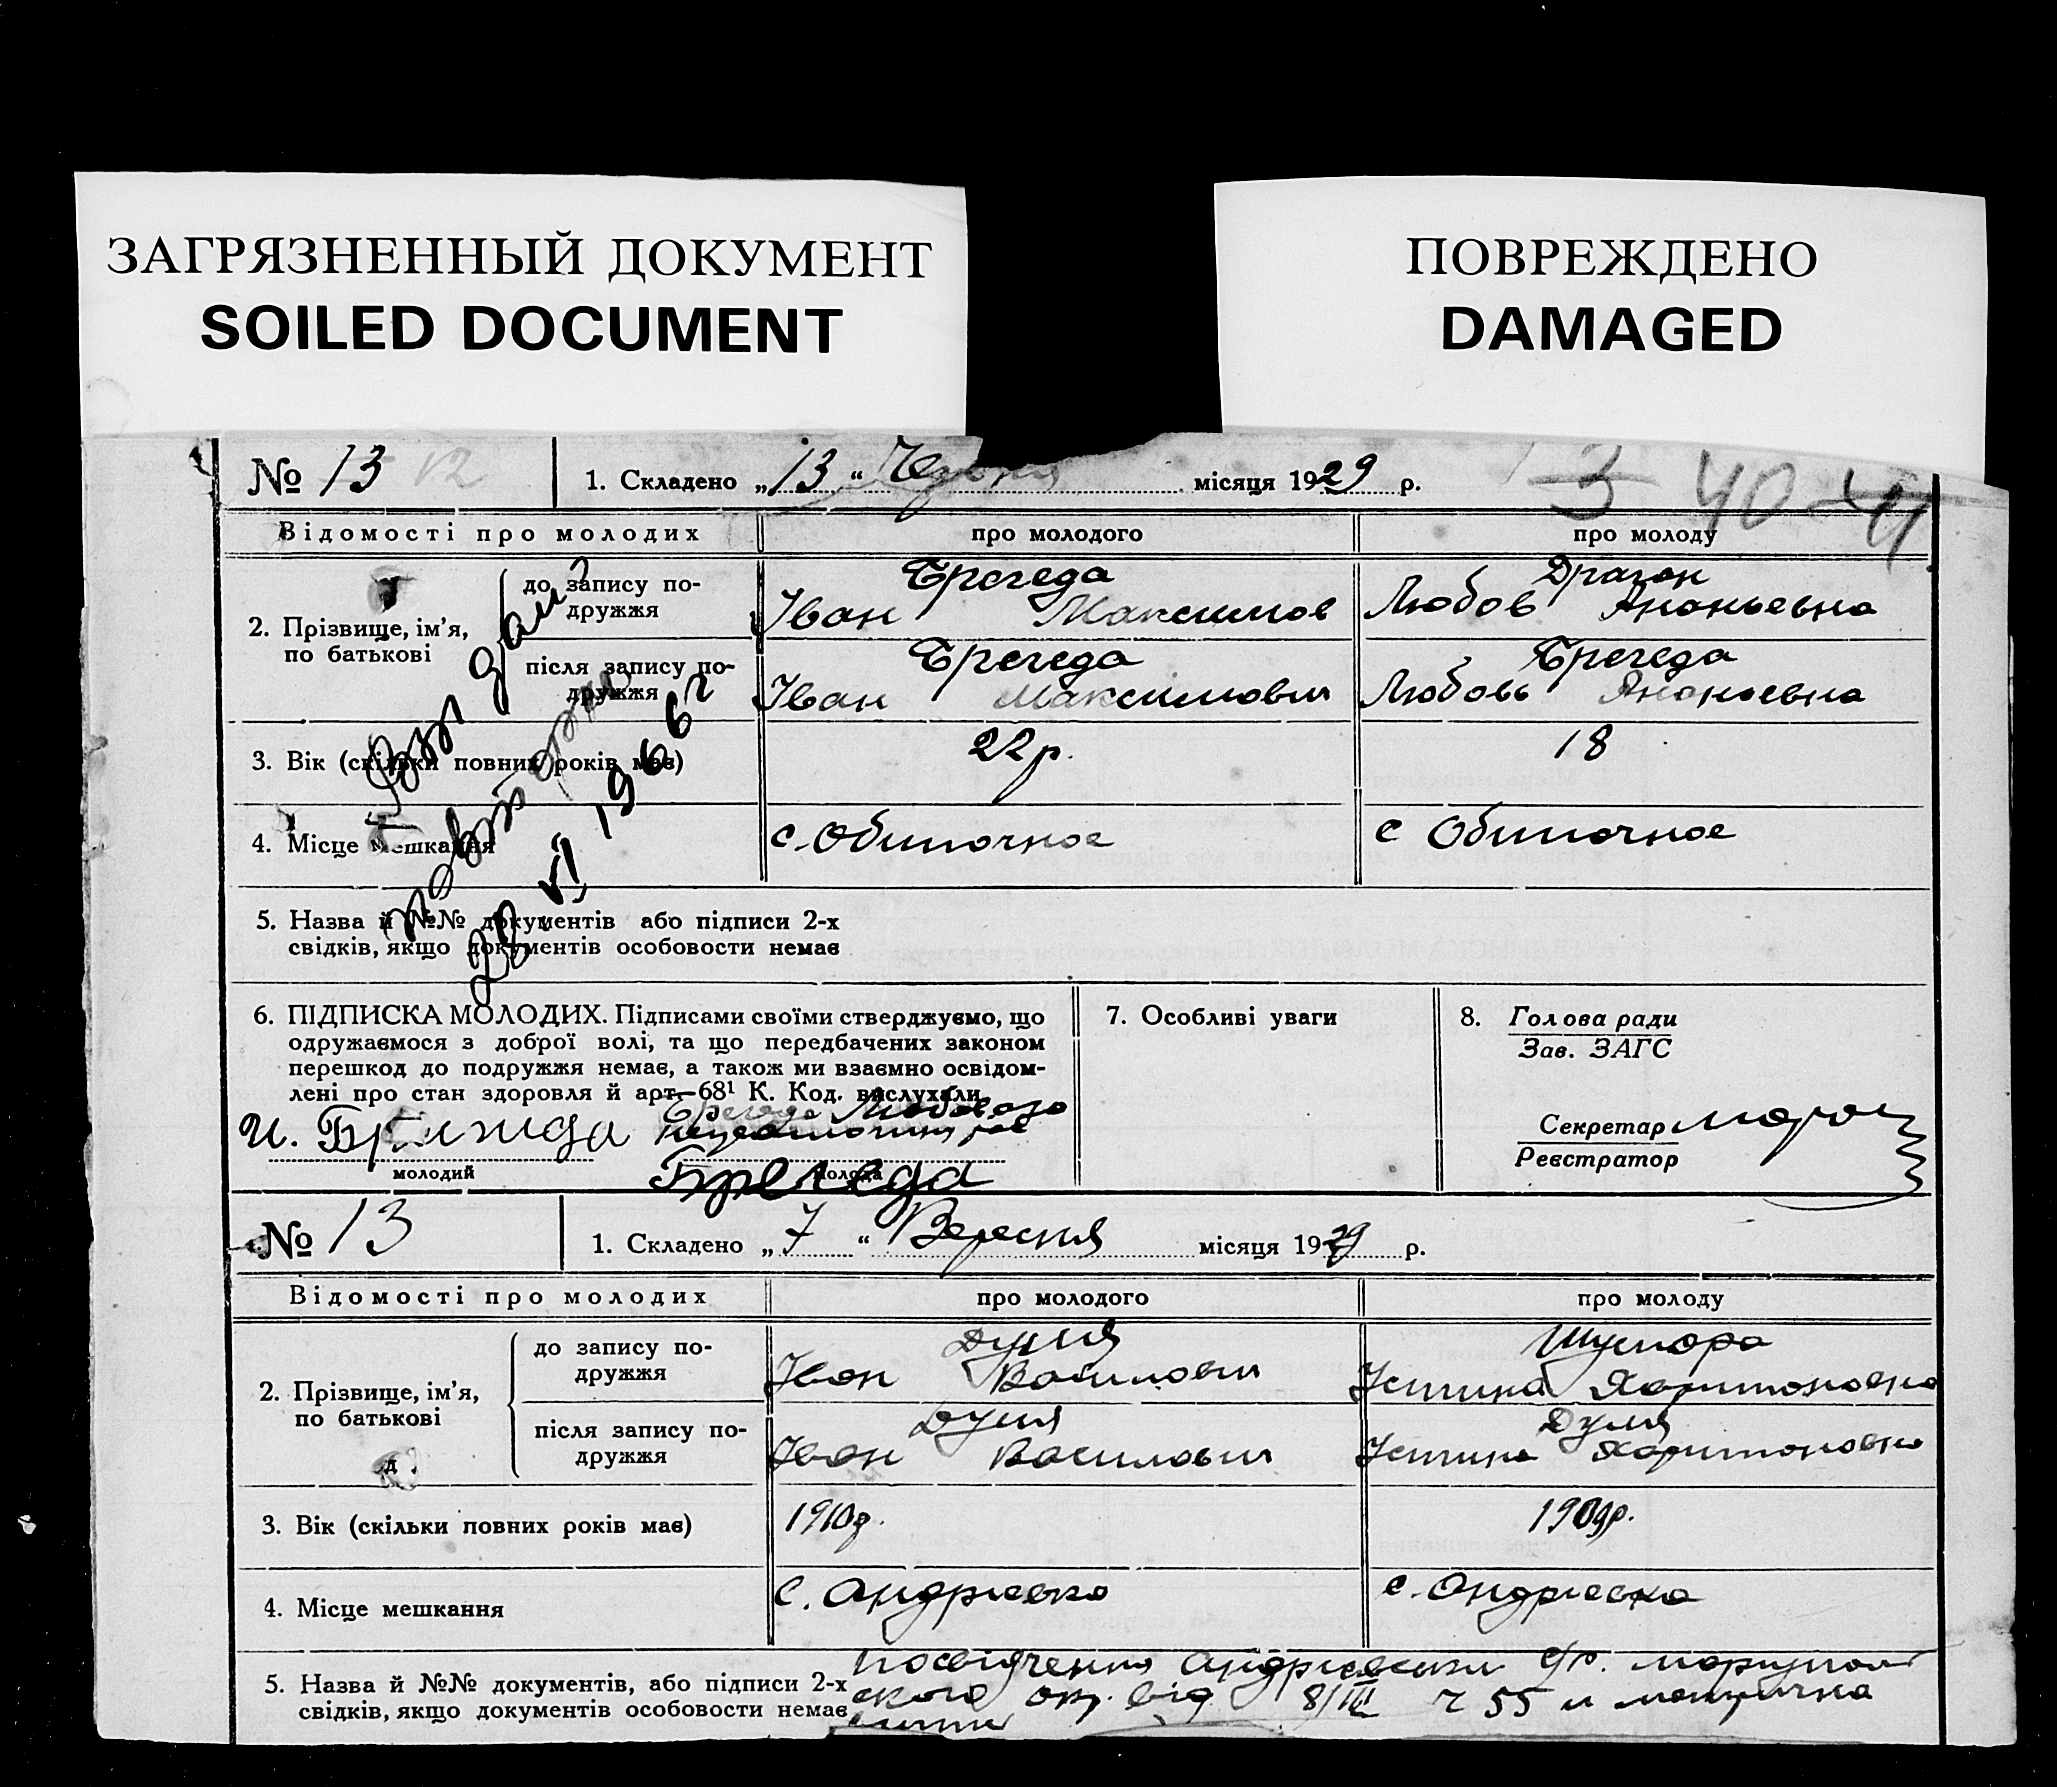 ЗАГРЯЗНЕННЫЙ ДОКУМЕНТ
SOILED DOCUMENT
ПОВРЕЖДЕНО
DAMAGED
№ 13 12
1. Складено „13“ Червня місяця 1929 р.
3 40
Відомості про молодих
про молодого
про молоду
2. Прізвище, ім’я, по батькові
до запису подружжя
Брегеда
Іван Максимов
Драган
Любов Ананьевна
після запису подружжя
Брегеда
Іван Максимович
Брегеда
Любовь Ананьевна
3. Вік (скільки повних років має)
22 р.
18
4. Місце мешкання
с. Обиточное
с Обиточное
28 VI 1966 г
5. Назва й №№ документів або підписи 2-х
свідків, якщо документів особовости немає
6. ПІДПИСКА МОЛОДИХ. Підписами своїми стверджуємо, що
одружаємося з доброї волі, та що передбачених законом
перешкод до подружжя немає, а також ми взаємно освідом-
лені про стан здоровля й арт. 68¹ К. Код. вислухали.
И. Брегеда
Брегеда
молодий
молода
Брегеда
7. Особливі уваги
8. Голова ради
Зав. ЗАГС
Секретар
Реєстратор
№ 13
1. Складено „7“ Вересня місяця 1929 р.
Відомості про молодих
про молодого
про молоду
2. Прізвище, ім’я, по батькові
до запису подружжя
Дуля
Іван Васильович
Шумара
Устина Харитоновна
після запису подружжя
Дуля
Іван Васильович
Дуля
Устина Харитоновна
3. Вік (скільки повних років має)
1910 р.
1909 р.
4. Місце мешкання
С. Андриевка
с. Андриевка
5. Назва й №№ документів, або підписи 2-х
свідків, якщо документів особовости немає
посвідчення Андриевськи с/р. мариупол
ского окр. від 8/III ч 55 и метрична